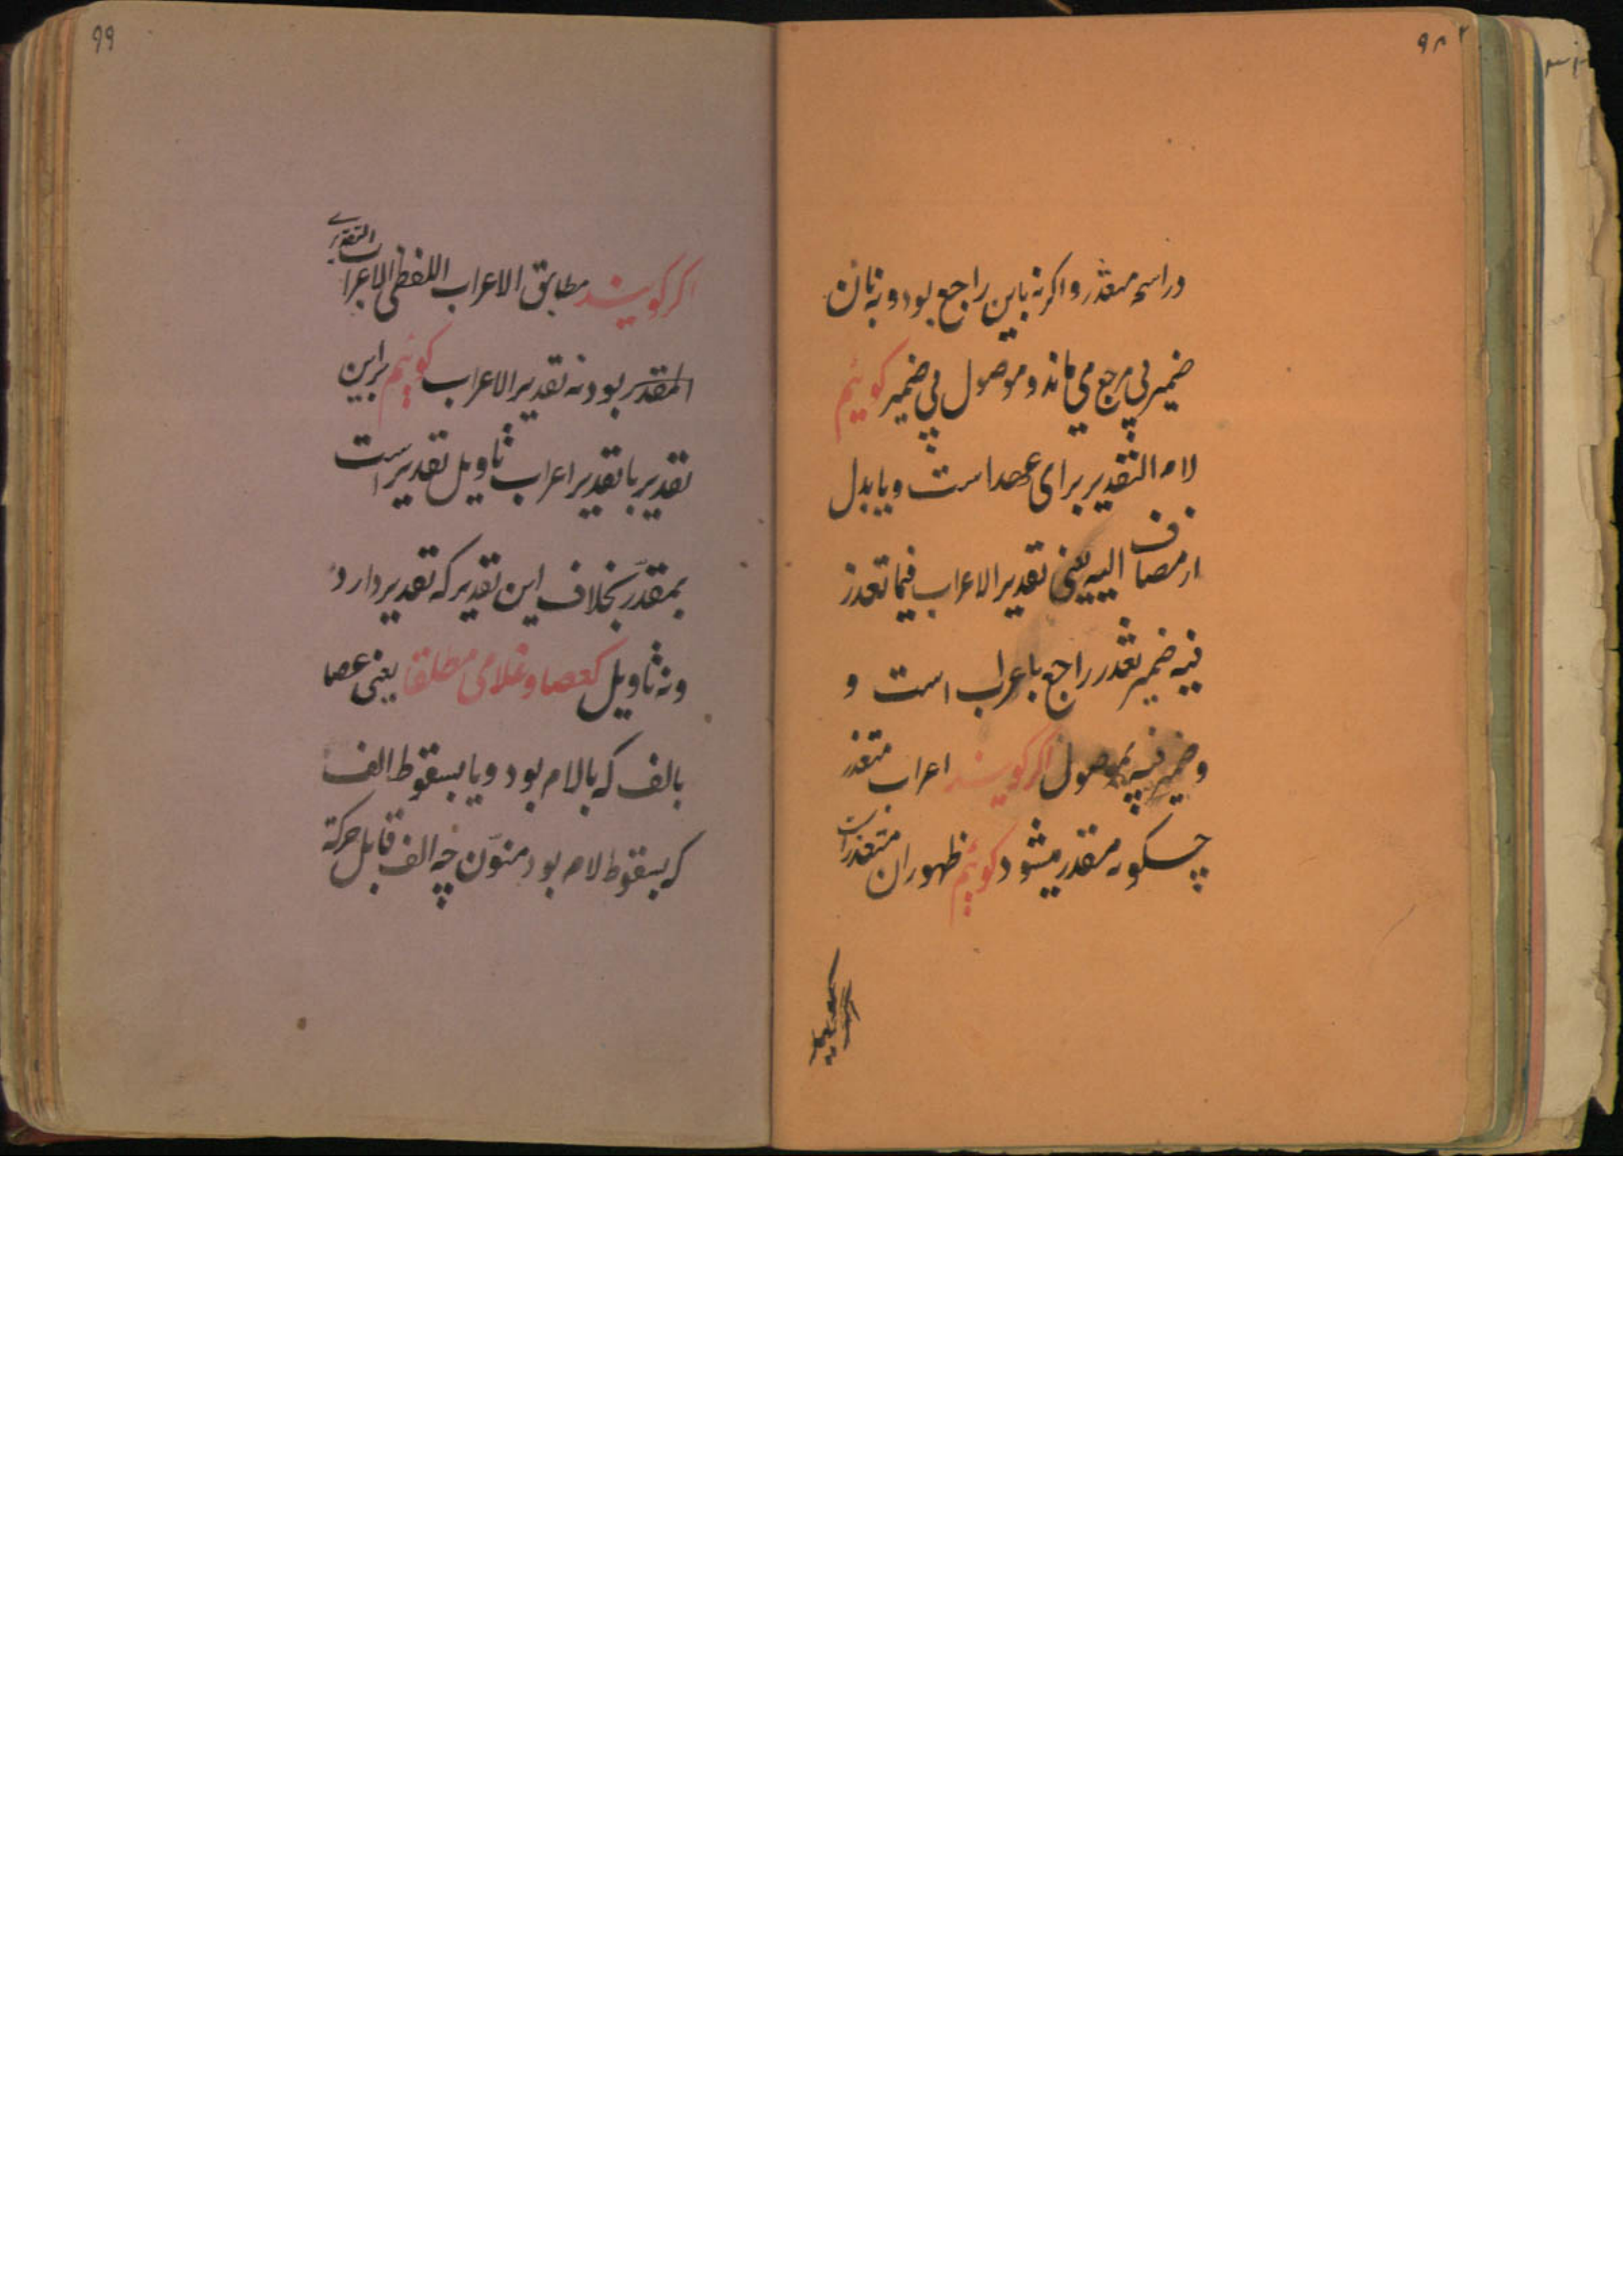 در اسم متعذر و اگر نه باین راجع بود و نه بآن
ضمیر بی مرجع می ماند و موصول بی ضمیر گوئیم
لام التقدیر برای عهد است و یا بدل
از مضاف الیه یعنی تقدیر الاعراب فیما تعذر
فیه ضمیر تعذر راجع باعراب است و
و ضمیر فیه بموصول اگر گویند اعراب متعذر
چگونه مقدر میشود گوئیم ظهور آن متعذر است
99
اگر گویند مطابق الاعراب اللفظی الاعراب التقدیری
المقدر بود نه تقدیر الاعراب گوئیم براین
تقدیر با تقدیر اعراب تاویل تقدیر است
بمقدّر بخلاف این تقدیر که تقدیر دارد
و نه تاویل کعصا و غلامی مطلقا یعنی عصا
بالف که بالام بود و یا بسقوط الف
که بسقوط لام بود منوّن چه الف قابل حرکة